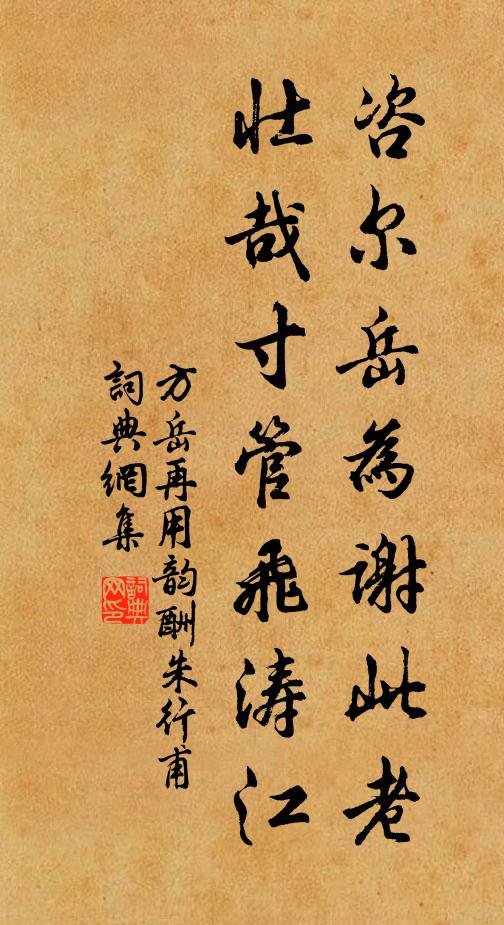 咨尔岳為谢此老
壮哉寸管飛涛江
方岳再用韵酬朱行甫
詞典網集
詞典網印